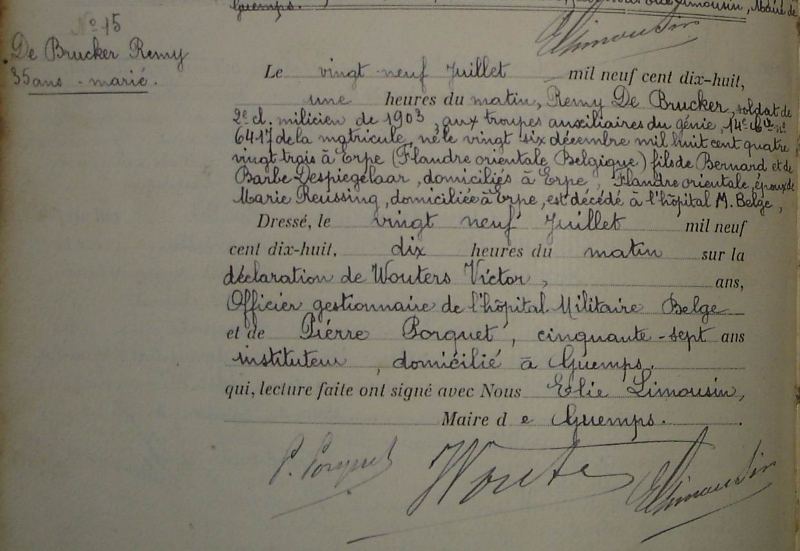 Guemps. Limousin, Maire de
N° 15
De Brucker Remy
35 ans - marié.
ELimousin
Le vingt neuf Juillet mil neuf cent dix-huit,
une heures du matin, Remy De Brucker, soldat de
2e cl. milicien de 1903, aux troupes auxiliaires du génie, 14e Cie n°
6417 de la matricule, né le vingt six décembre mil huit cent quatre
vingt trois à Erpe (Flandre orientale Belgique) fils de Bernard et de
Barbe Despiegelaar, domiciliés à Erpe, Flandre orientale, époux de
Marie Reussing, domiciliée à Erpe, est décédé à l'hôpital M. Belge,
Dressé, le vingt neuf Juillet mil neuf
cent dix-huit, dix heures du matin sur la
déclaration de Wouters Victor, ans,
Officier gestionnaire de l'hôpital Militaire Belge
et de Piérre Porquet, cinquante-sept ans
instituteur, domicilié à Guemps.
qui, lecture faite ont signé avec Nous Elie Limousin,
Maire de Guemps.
P. Porquet Wouters ELimousin